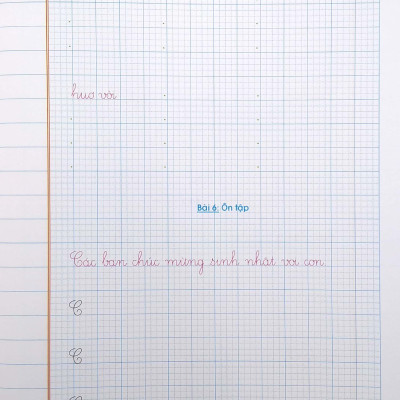 huơ vòi
Bài 6: Ôn tập
Các bạn chúc mừng sinh nhật voi con
C
C
C